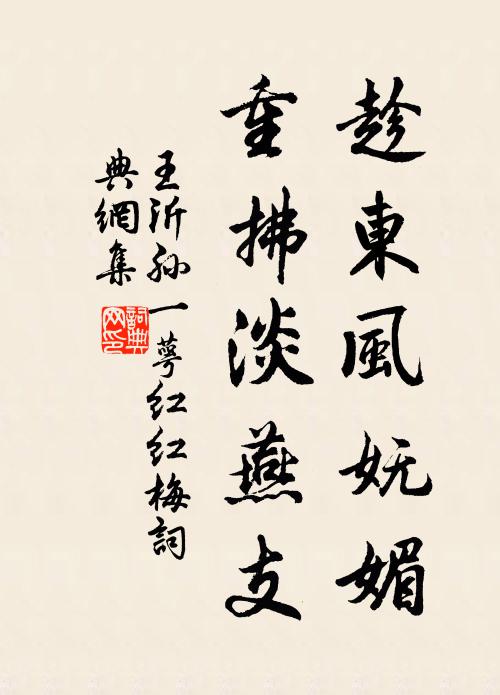 趁東風妩媚
重拂淡燕支
王沂孙一萼红红梅詞
典網集
詞典网印